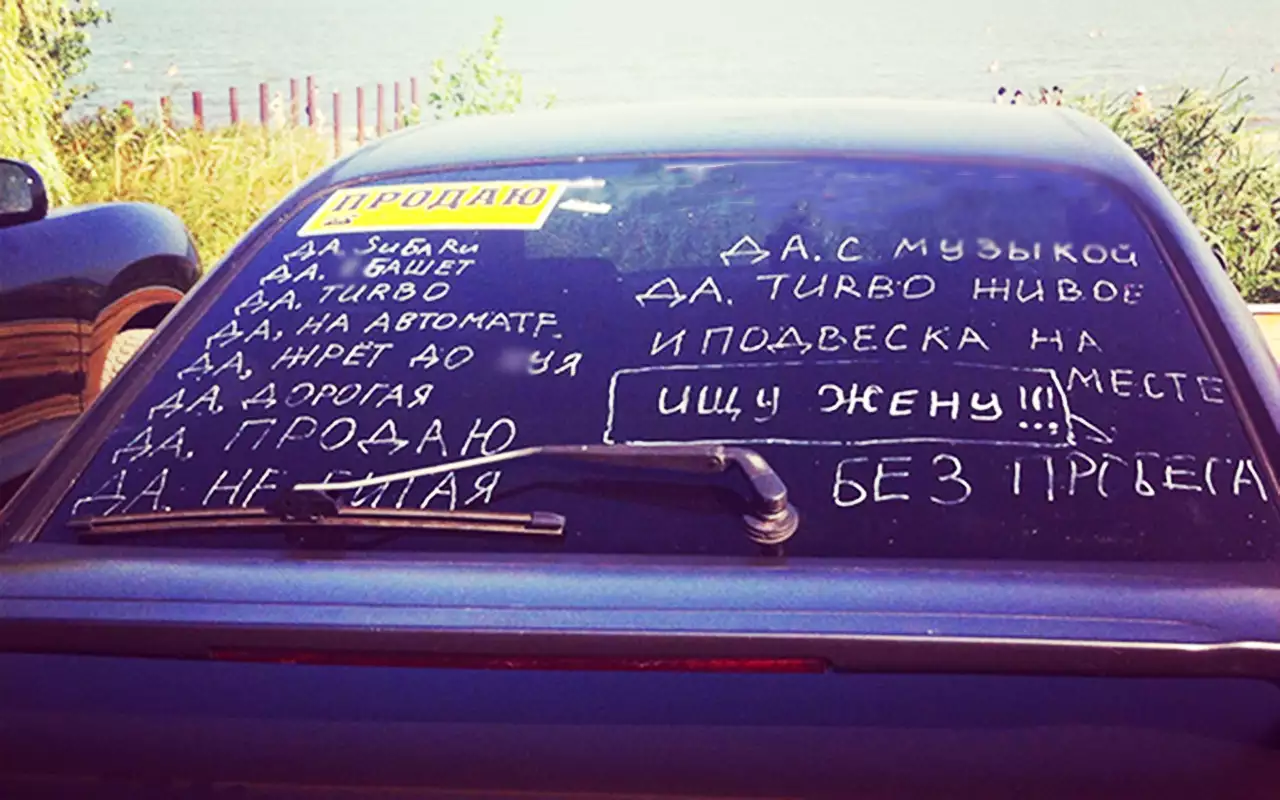 ПРОДАЮ
ДА. SUБАRU
ДА. БАШЕТ
ДА. TURBO
ДА, НА АВТОМАТЕ.
ДА, ЖРЁТ ДО УЯ
ДА, ДОРОГАЯ
ДА. ПРОДАЮ
ДА. НЕ БИТАЯ
ДА. С МУЗЫКОЙ
ДА. TURBO ЖИВОЕ
И ПОДВЕСКА НА
МЕСТЕ
ИЩУ ЖЕНУ!!!
БЕЗ ПРОБЕГА